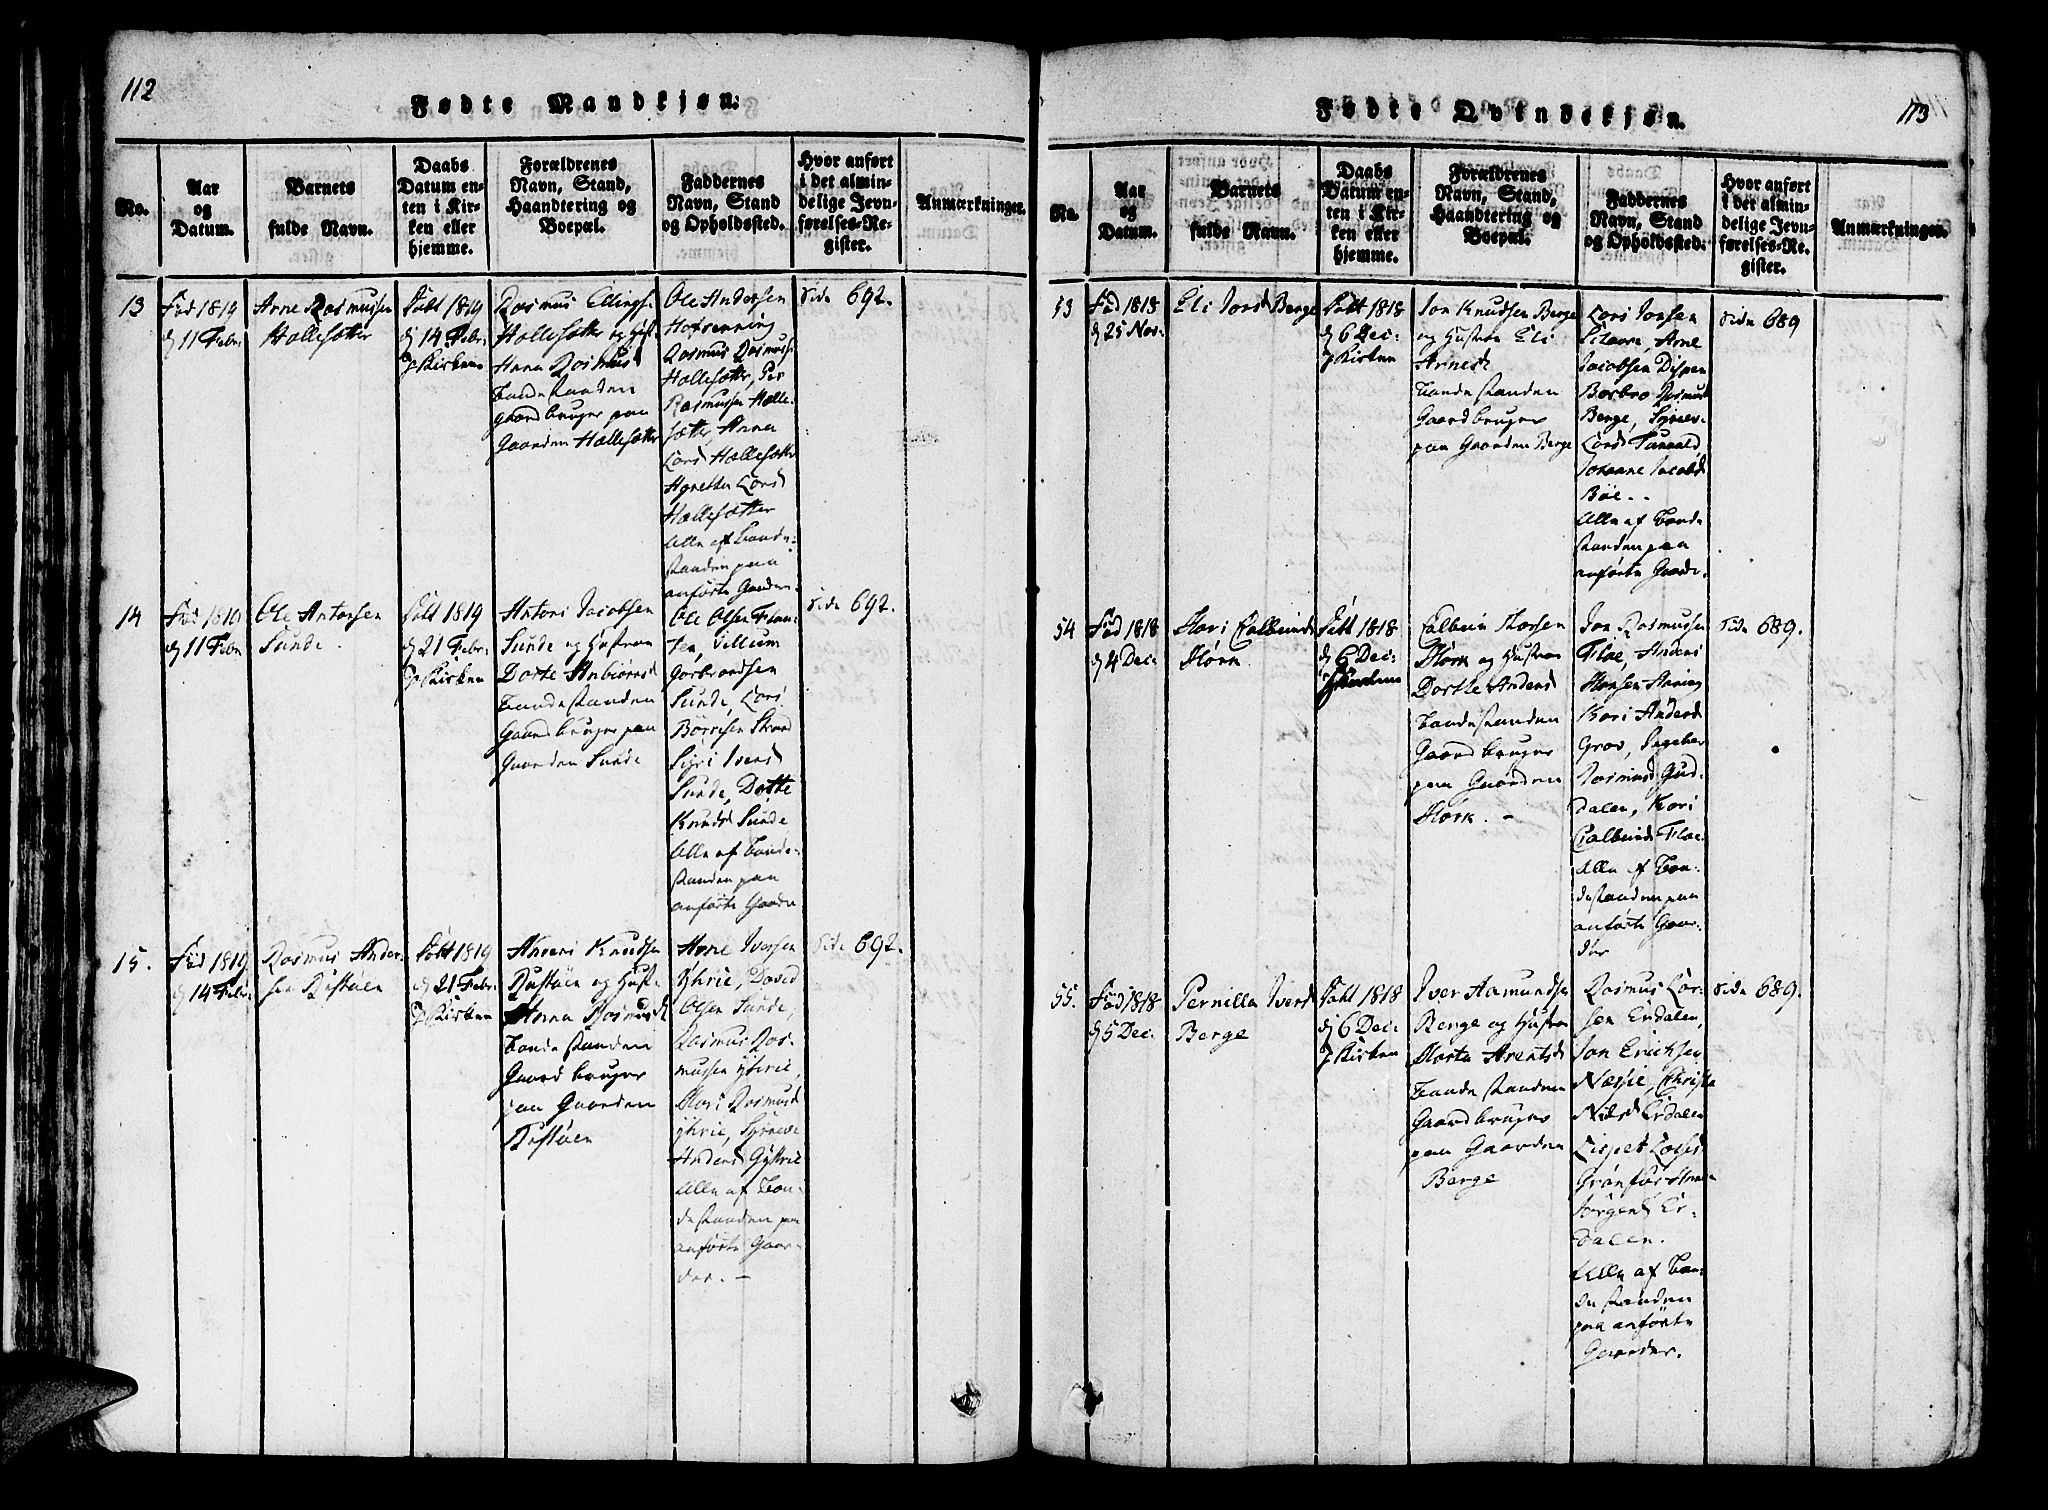 112
Fødte Mandkjøn.
No.
Aar
og
Datum.
Barnets
fulde Navn.
Daabs
Datum en-
ten i Kir-
ken eller
hjemme.
Forældrenes
Navn, Stand,
Haandtering og
Boepæl.
Faddernes
Navn, Stand
og Opholdssted.
Hvor anført
i det almin-
delige Jevn-
førelses-Re-
gister.
Anmærkninger.
13
Fød 1819
d 11 Febr
Arne Rasmussen
Hollesætter
Døbt 1819
d 14 Febr:
i Kirken
Rasmus Ellings:
Hollesætter og Hust:
Anna Rasmusd
Bondestanden
Gaardbruger paa
Gaarden Hollesætter
Ole Andersen
Rasmus Rasmuss:
Hollesætter, Per
Rasmussen Holle-
sætter, Anna
Larsd Hollesætter
Agnethe Larsd
Hollesætter
Alle af Bonde-
standen paa
anførte Gaarder
Side 692.
14
Fød 1819
d 11 Febr
Ole Antonsen
Sunde.
Døbt 1819
d 21 Febr:
i Kirken
Antoni Jacobsen
Sunde og Hustrue
Dorte Anbiørnsd
Bondestanden
Gaardbruger paa
Gaarden Sunde
Ole Olsen Flaa-
ten, Villum
Gorbrandsen
Sunde, Lars
Børresen Strand
Siri Iversd
Sunde, Dorthe
Knudsd Sunde
Alle af Bonde-
standen paa
anførte Gaarde
Side 692.
15.
Fød 1819
d 14 Febr:
Rasmus Ander-
sen Rustøen
Døbt 1819
d 21 Febr:
i Kirken
Anders Knudsen
Rustøen og Hust:
Anna Rasmusd
Bondestanden
Gaardbruger
paa Gaarden
Rustøen
Arne Iversen
Yhrie, David
Olsen Sunde,
Rasmus Ras-
mussen Yhrie,
Mari Rasmusd
Yhrie, Synneve
Andersd Gyttrie
Alle af Bon-
destanden paa
anførte Gaar-
der. –
Side 692.
113
Fødte Qvindekjøn.
No.
Aar
og
Datum.
Barnets
fulde Navn.
Daabs
Datum en-
ten i Kir-
ken eller
hjemme.
Forældrenes
Navn, Stand,
Haandtering og
Boepæl.
Faddernes
Navn, Stand
og Opholdssted.
Hvor anført
i det almin-
delige Jevn-
førelses-Re-
gister.
Anmærkninger.
53
Fød 1818
d 25 Nov:
Eli Jonsd Berge
Døbt 1818
d 6 Dec:
i Kirken
Jon Knudsen Berge
og Hustrue Eli
Arnesd
Bondestanden
Gaardbruger
paa Gaarden Berge
Lars Jonsen
Arne
Jacobsen Dispen
Barbro Rasmusd
Berge, Synnev
Larsd Tunold
Johanne Jacobsd
Bøe. –
Alle af Bonde
standen paa
anførte Gaarde.
Side 689
54
Fød 1818
d 4 Dec:
Mari Colbeinsd
Mørk
Døbt 1818
d 6 Dec:
i Kirken
Colbein Larsen
Mørk og Hustrue
Dorthe Andersd
Bondestanden
Gaardbruger
paa Gaarden
Mørk. –
Jon Rasmussen
Floe, Anders
Hansen
Kari Andersd
Grov, Ingebor
Rasmusd Gud-
dalen, Kari
Colbeinsd Floe
Alle af Bon-
destanden paa
anførte Gaar-
der
Side 689.
55.
Fød 1818
d 5 Dec:
Pernille Iversd
Berge
Døbt 1818
d 6 Dec:
i Kirken
Iver Aamundsen
Berge og Hustrue
Marta Arentsd
Bondestanden
Gaardbruger
paa Gaarden
Berge
Rasmus Lar-
sen Erdalen,
Jon Ericksen
Næssie, Christe
Nielsd Erdalen
Lispet
Grønfur Anna
Jørgensd Er-
dalen.
Alle af Bon-
destanden
paa anførte
Gaarder.
Side 689.